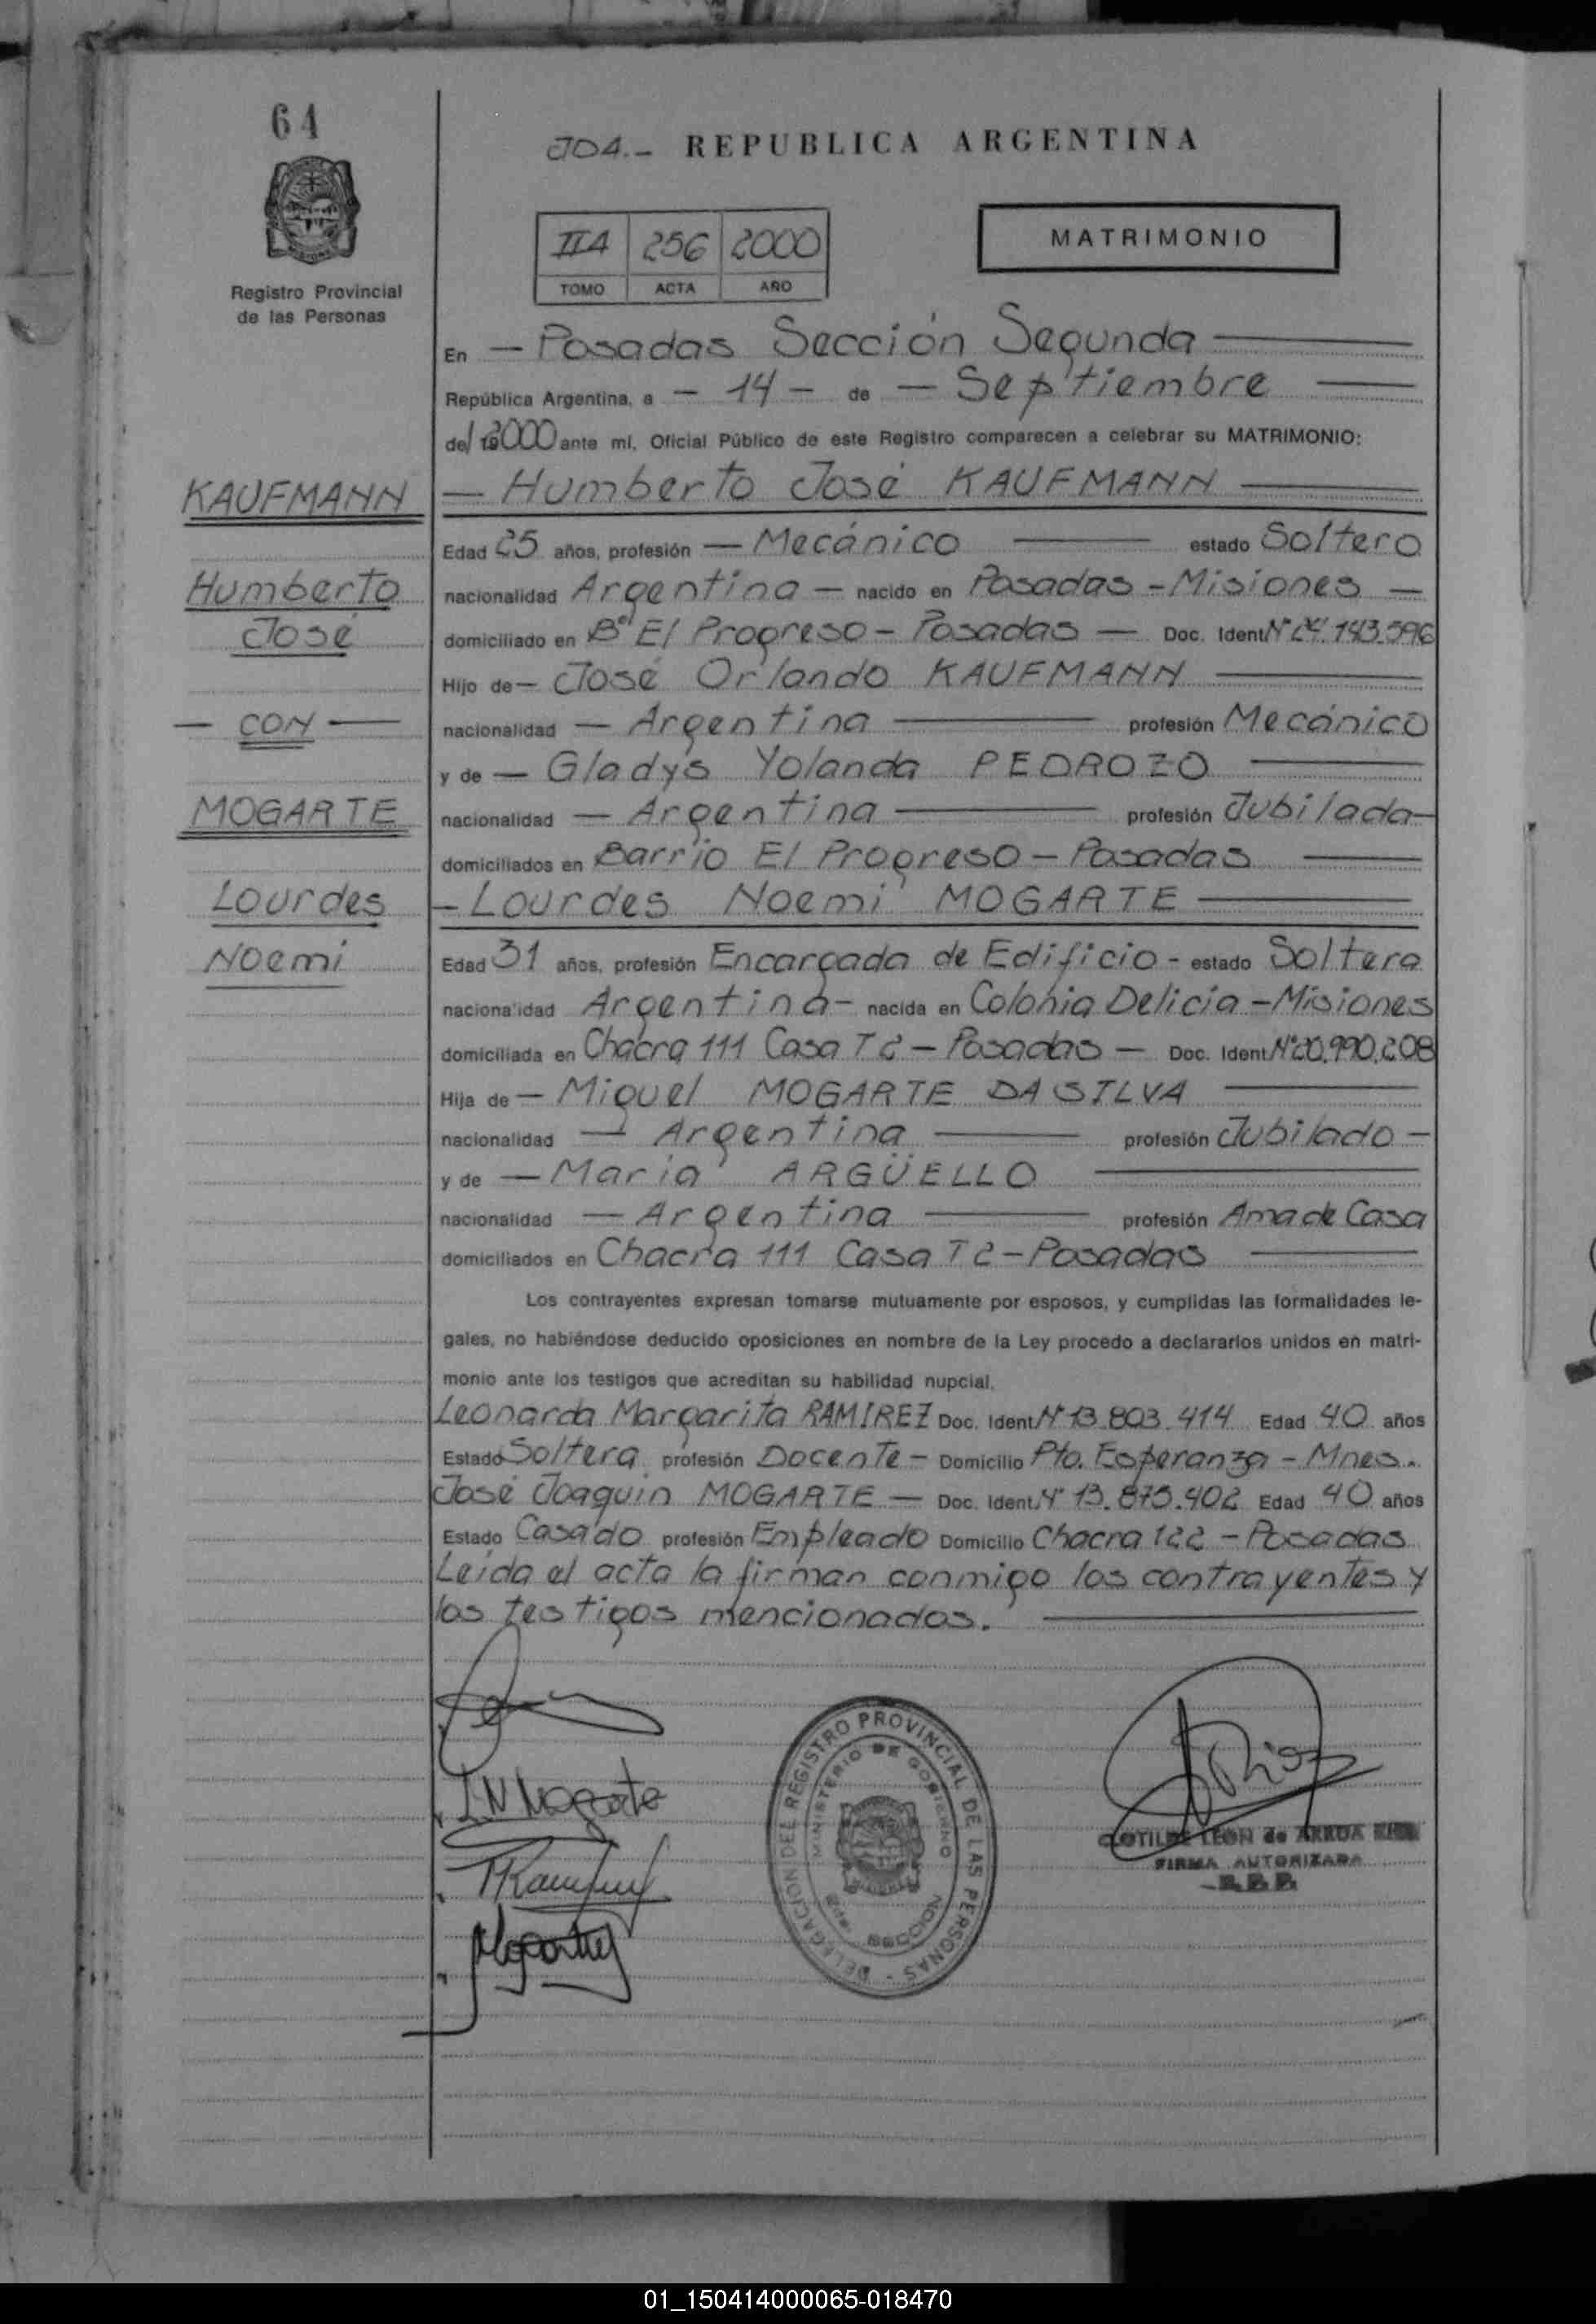 64
JOA.- REPUBLICA ARGENTINA
IIA 256 2000
TOMO ACTA AÑO
MATRIMONIO
Registro Provincial
de las Personas
En — Posadas Sección Segunda —
República Argentina, a — 14 — de — Septiembre —
del 2000 ante mí, Oficial Público de este Registro comparecen a celebrar su MATRIMONIO:
KAUFMANN
Humberto
José
— CON —
MOGARTE
Lourdes
Noemi
— Humberto José KAUFMANN —
Edad 25 años, profesión — Mecánico — estado Soltero
nacionalidad Argentina — nacido en Posadas - Misiones —
domiciliado en B° El Progreso - Posadas — Doc. Ident. N° 24.143.596
Hijo de — José Orlando KAUFMANN —
nacionalidad — Argentina — profesión Mecánico
y de — Gladys Yolanda PEDROZO —
nacionalidad — Argentina — profesión Jubilada —
domiciliados en Barrio El Progreso - Posadas —
- Lourdes Noemi MOGARTE —
Edad 31 años, profesión Encargada de Edificio - estado Soltera
nacionalidad Argentina - nacida en Colonia Delicia - Misiones
domiciliada en Chacra 111 Casa T2 - Posadas — Doc. Ident. N° 20.990.208
Hija de — Miguel MOGARTE DA SILVA —
nacionalidad — Argentina — profesión Jubilado —
y de — María ARGÜELLO —
nacionalidad — Argentina — profesión Ama de Casa
domiciliados en Chacra 111 Casa T2 - Posadas —
Los contrayentes expresan tomarse mutuamente por esposos, y cumplidas las formalidades le-
gales, no habiéndose deducido oposiciones en nombre de la Ley procedo a declararlos unidos en matri-
monio ante los testigos que acreditan su habilidad nupcial.
Leonarda Margarita RAMIREZ Doc. Ident. N° 13.803.414 Edad 40 años
Estado Soltera profesión Docente - Domicilio Pto. Esperanza - Mnes.
José Joaquin MOGARTE — Doc. Ident. N° 13.875.402 Edad 40 años
Estado Casado profesión Empleado Domicilio Chacra 122 - Posadas
Leída el acta la firman conmigo los contrayentes y
los testigos mencionados. —
LN Mogarte
DELEGACION DEL REGISTRO PROVINCIAL DE LAS PERSONAS -
MINISTERIO DE GOBIERNO
SECCION
CLOTILDE LEON de ARRUA
FIRMA AUTORIZADA
01_150414000065-018470